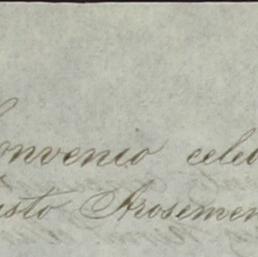 Convenio celeb
usto Arosemen